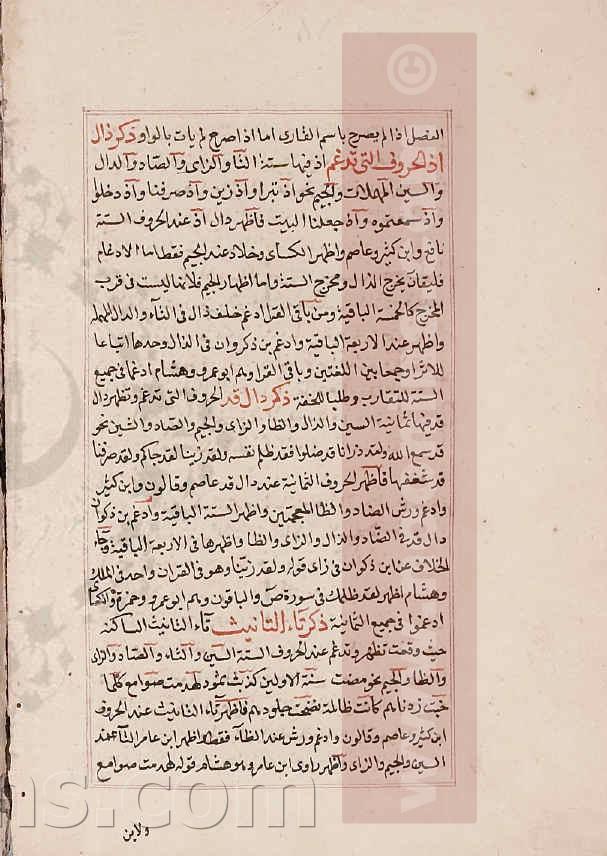 الفصل اذا لم يصرح باسم القارى اما اذا صرح لم يات بالواو ذكر ذال
اذ الحروف التى تدغم اذ فيها ستة التا والزاى والصاد والدال
والسين المهملات والجيم نحو اذ تبرا واذ زين واذ صرفنا واذ دخلوا
واذ سمعتموه واذ جعلنا البيت فاظهر دال اذ عند الحروف الستة
نافع وابن كثير وعاصم واظهر الكساى وخلاد عند الجيم فقط اما الادغام
مخرج الذال ومخرج الستة واما اظهار الجيم فلانها ليست فى قرب
المخرج كالخمسة الباقية ومن باقى القرا ادغم خلف ذال فى التاء والدال المهملة
واظهر عند الاربعة الباقية وادغم بن ذكوان فى الدال وحدها اتباعا
للاثر وجمعا بين اللغتين وباقى القرا وهم ابو عمرو وهشام ادغما فى جميع
الستة للتقارب وطلبا للخفة ذكر دال قد الحروف التى تدغم وتظهر دال
قد فيها ثمانية السين والذال والظا والزاى والجيم والصاد والشين نحو
قد سمع الله ولقد ذرانا قد ضلوا فقد ظلم نفسه ولقد زينا لقد جاكم ولقد صرفنا
قد شغفها فاظهر الحروف الثمانية عند دال قد عاصم وقالون وابن كثير
وادغم ورش الضاد والظا المعجمتين واظهر الستة الباقية وادغم بن ذكوان
دال قد فى الضاد والذال والزاى والظا واظهرها فى الاربعة الباقية وجاء
الخلاف عن ابن ذكوان فى زاى قوله ولقد زينا وهو فى القران واحد فى الملك
وهشام اظهر لقد ظلمك فى سورة ص والباقون وهم ابو عمرو وحمزة والكساى
ادغموا فى جميع الثمانية ذكر تاء التانيث تاء التانيث الساكنه
حيث وقعت تظهر وتدغم عند الحروف الستة السين والثاء والصاد والزاى
والظا والجيم نحو مضت سنة الاولين كذبت ثمود لهدمت صوامع كلما
خبت زدناهم كانت ظالمة نضجت جلودهم فاظهر تاء التانيث عند الحروف
ابن كثير وعاصم وقالون وادغم ورش عند الظاء فقط واظهر ابن عامر التاء عند
السين والجيم والزاى واظهر راوى ابن عامر وهو هشام قوله لهدمت صوامع
ولابن
ns.com